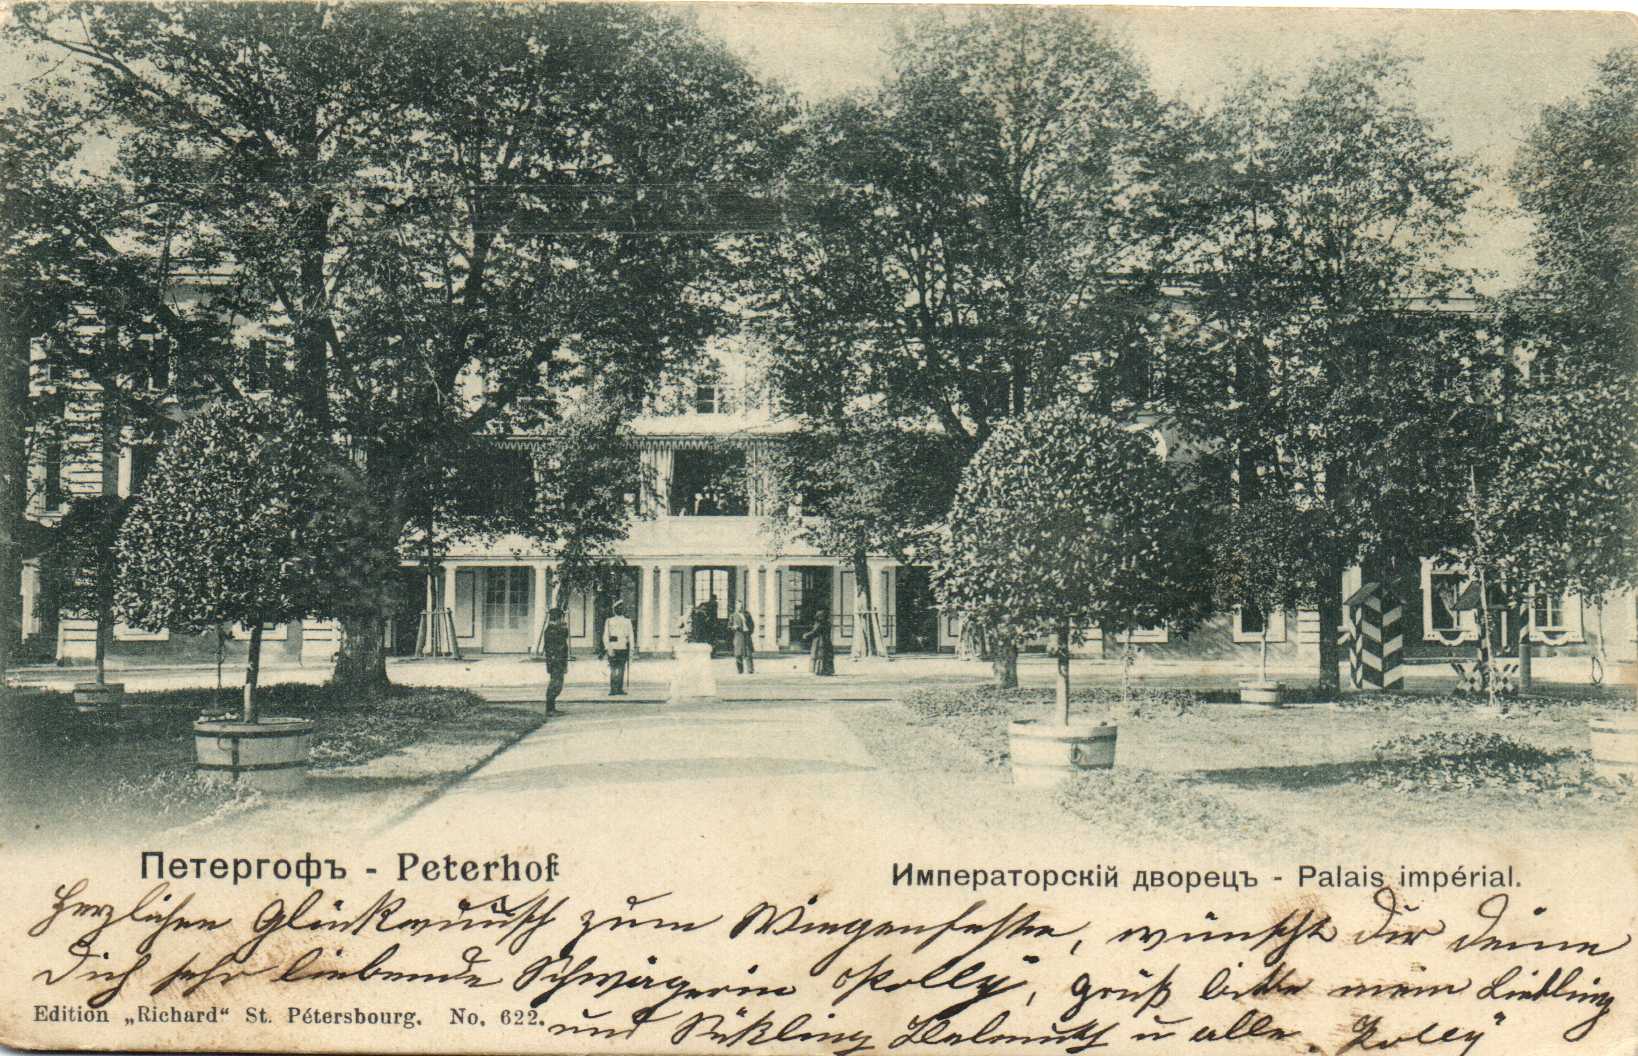 Петергофъ - Peterhof.
Императорскій дворецъ - Palais impérial.
Herzlichen Glückwünsch zum Wiegenfeste, wünscht dir deine
Dich sehr liebende Schwägerin Polly, grüß bitte mein Liebling
Edition „Richard“ St. Pétersbourg. No. 622.
und Helmuth u alle. Polly